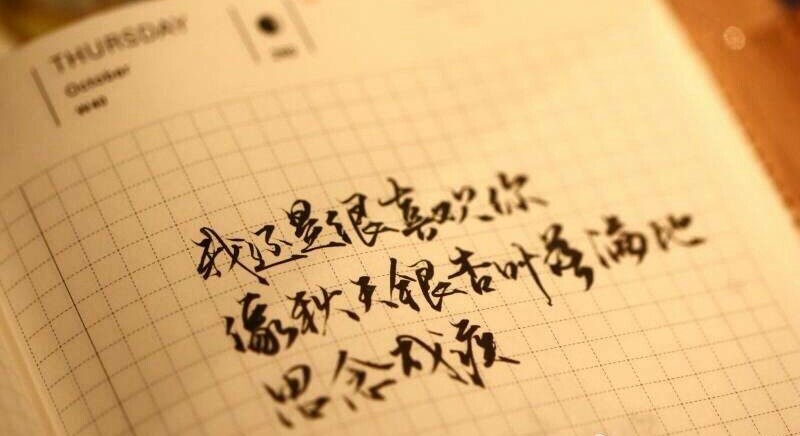 THURSDAY
October
W40
我还是很喜欢你
像秋天银杏叶落满地
思念成疾